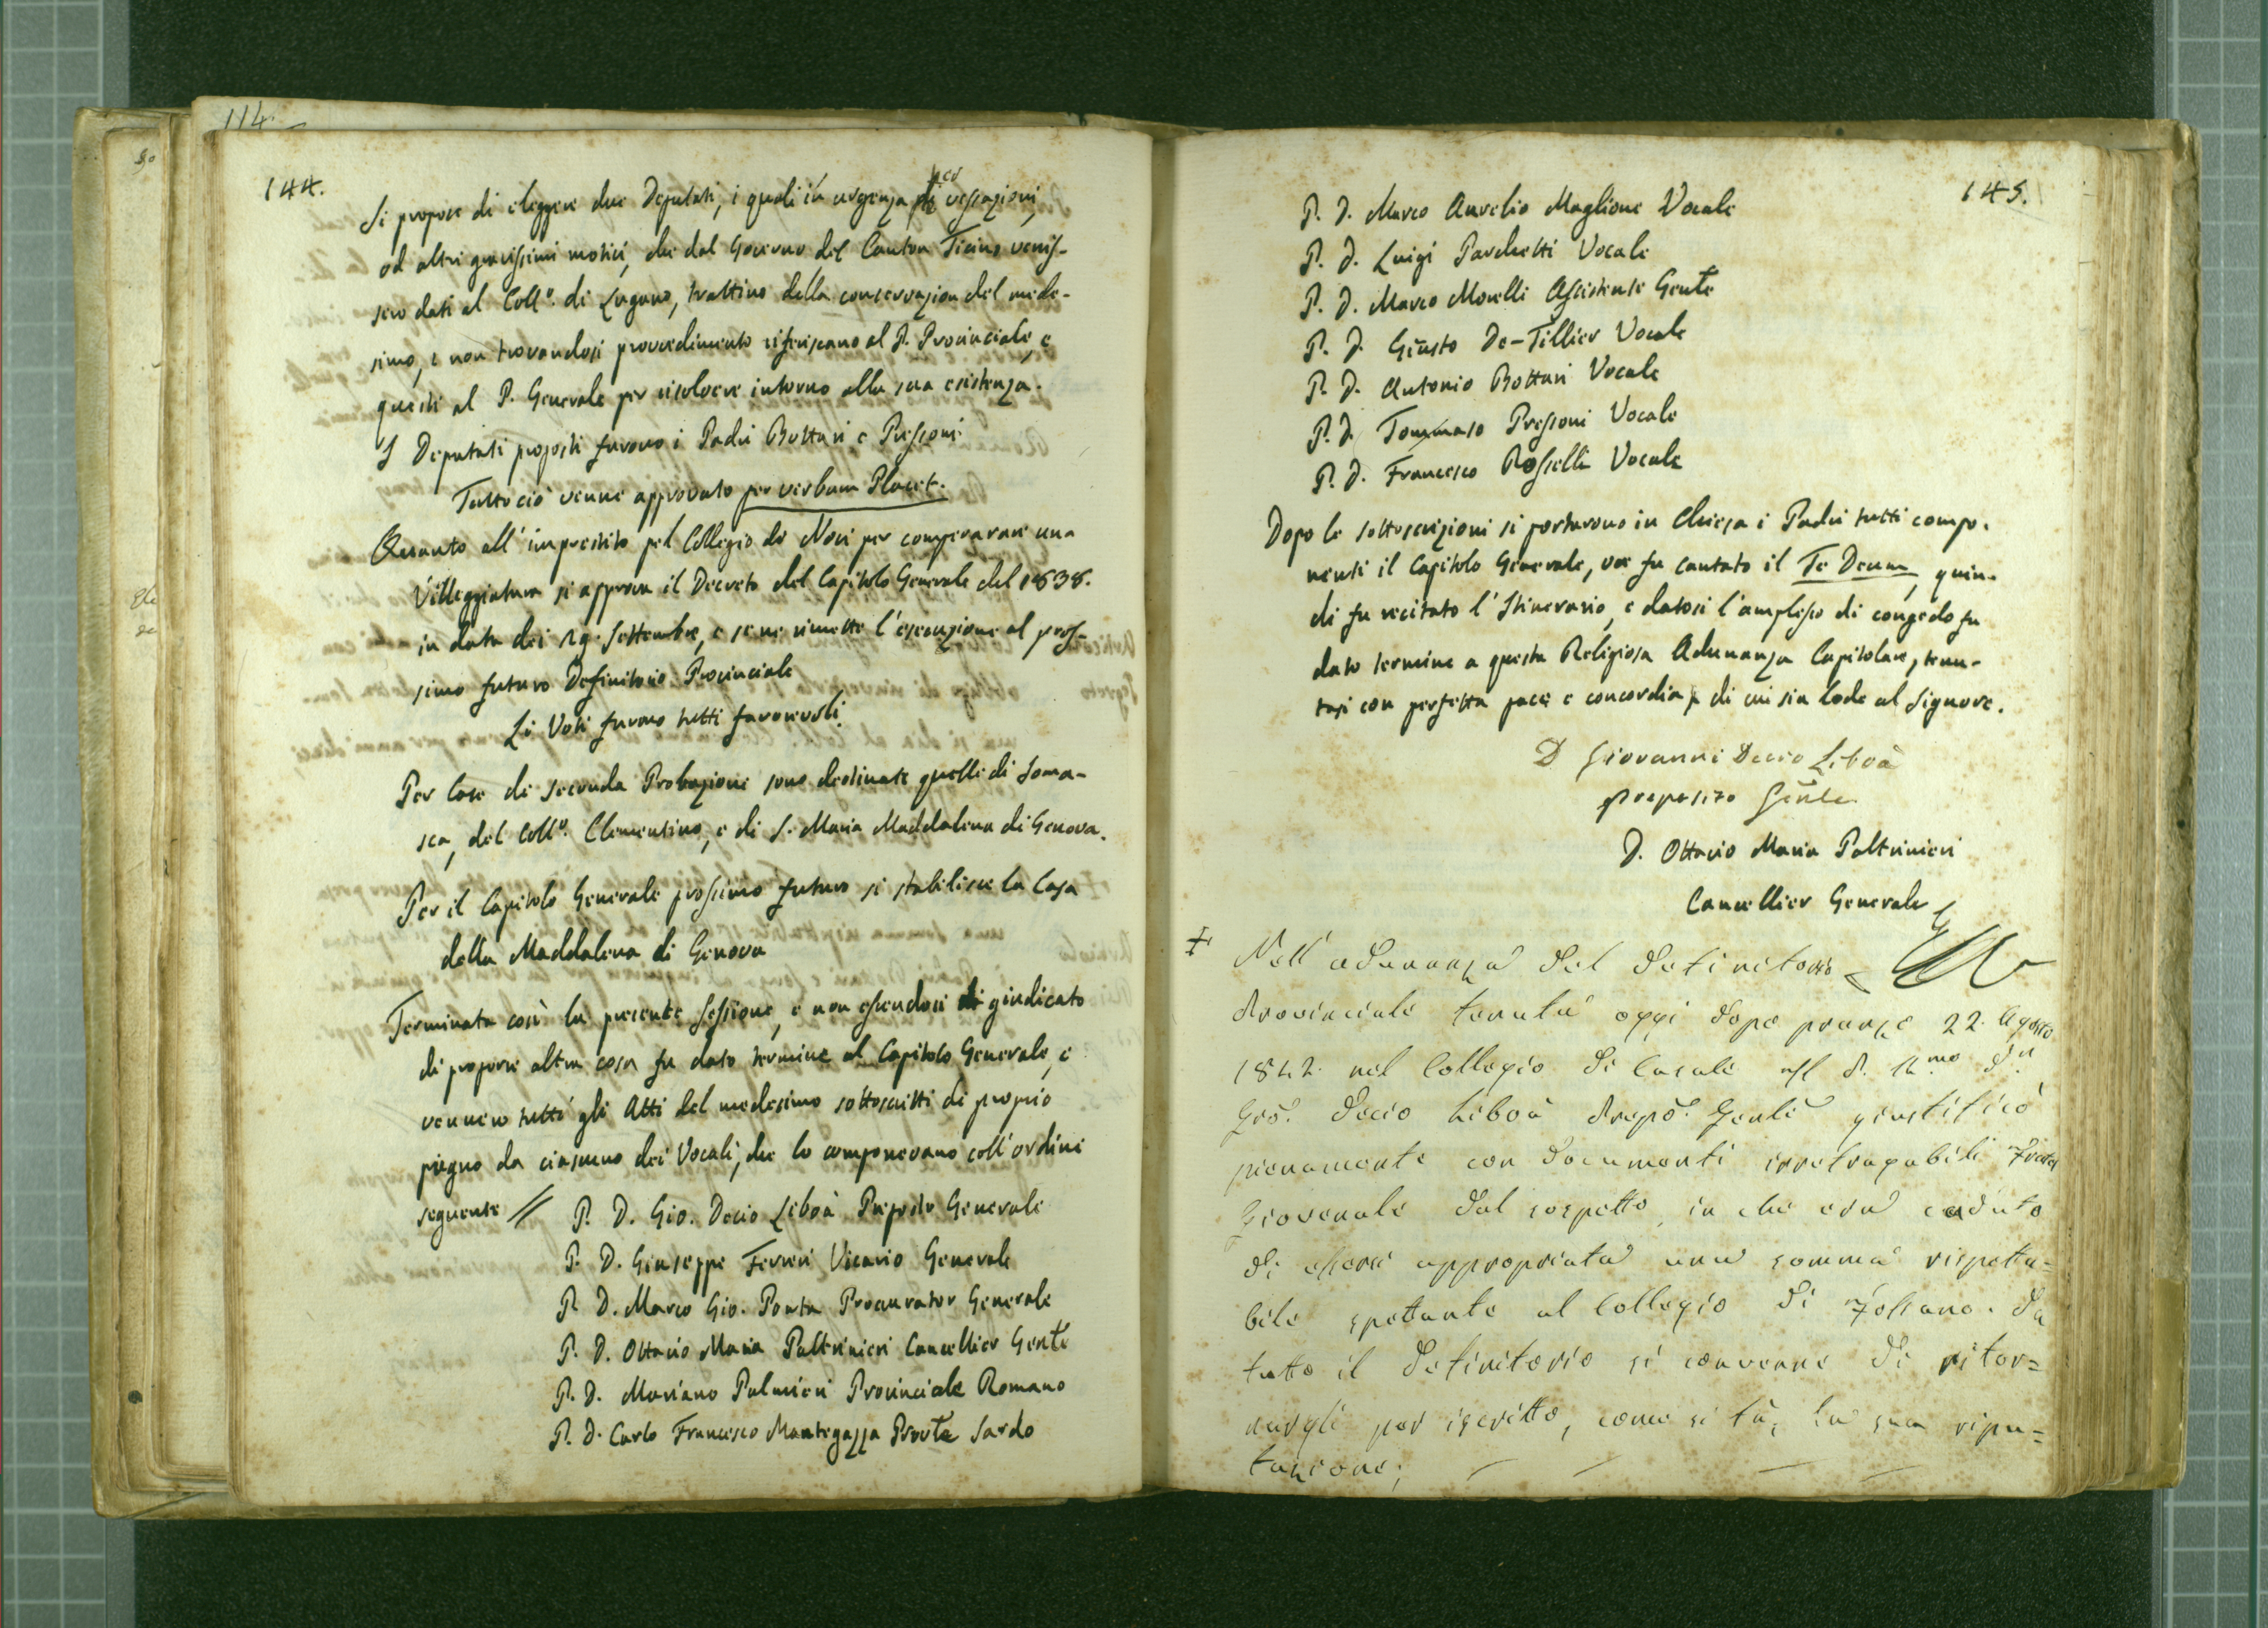 114.
144.
Si propose di eleggere due Deputati, i quali in urgenza per vessazioni,
od altri gravissimi motivi, che dal Governo del Canton Ticino venis-
sero dati al Coll.º di Lugano, trattino della conservazion del mede-
simo, e non trovandosi provvedimento riferiscano al P. Provinciale, e
questi al P. Generale per risolvere intorno alla sua esistenza.
I Deputati proposti furono i Padri Bottari e Pressoni.
Tutto ciò venne approvato per verbum Placet.
Quanto all'imprestito pel Collegio di Novi per comperarare una
Villeggiatura si approva il Decreto del Capitolo Generale del 1838.
in data dei 19. Settembre, e se ne rimette l'esecuzione al pros-
simo futuro Definitorio Provinciale
Li Voti furono tutti favorevoli.
Per Case di seconda Probazione sono destinate quelle di Soma-
sca, del Coll.º Clementino, e di S. Maria Maddalena di Genova.
Per il Capitolo Generale prossimo futuro si stabilisce la Casa
della Maddalena di Genova
Terminata così la presente Sessione, e non essendosi giudicato
di proporre altra cosa fu dato termine al Capitolo Generale, e
vennero tutti gli Atti del medesimo sottoscritti di proprio
pugno da ciascuno dei Vocali, che lo componevano coll'ordine
seguente // P. D. Gio. Decio Liboà Preposto Generale
P. D. Giuseppe Ferreri Vicario Generale
P. D. Marco Gio. Ponta Procurator Generale
P. D. Ottavio Maria Paltrinieri Cancellier Genle
P. D. Mariano Palmieri Provinciale Romano
P. D. Carlo Francesco Mantegazza Provle Sardo
145.
P. D. Marco Aurelio Maglione Vocale
P. D. Luigi Parchetti Vocale
P. D. Marco Morelli Assistente Genle
P. D. Giusto De-Tillier Vocale
P. D. Antonio Bottari Vocale
P. D. Tommaso Pressoni Vocale
P. D. Francesco Rosselli Vocale
Dopo le sottoscrizioni si portarono in Chiesa i Padri tutti compo-
nenti il Capitolo Generale, ove fu cantato il Te Deum, quin-
di fu recitato l'Itinerario, e datosi l'amplesso di congedo fu
dato termine a questa Religiosa Adunanza Capitolare, tenu-
tasi con perfetta pace e concordia, di cui sia lode al Signore.
D Giovanni Decio Liboà
preposito Gñle
D. Ottavio Maria Paltrinieri
Cancellier Generale
‡ Nell'adunanza del Definitorio
Provinciale tenuta oggi dopo pranzo 22. Agosto
1842. nel Collegio di Casale il P. Rmo Dn
Gio. Decio Liboà Prepo. Genle giustificò
pienamente con documenti irretragabili Fratel
Giovenale dal sospetto, in che era caduto
di essersi appropriata una somma rispetta=
bile spettante al Collegio di Fossano. Da
tutto il Definitorio si convenne di ritor=
nargli per iscritto, come si fà, la sua ripu=
tazione;